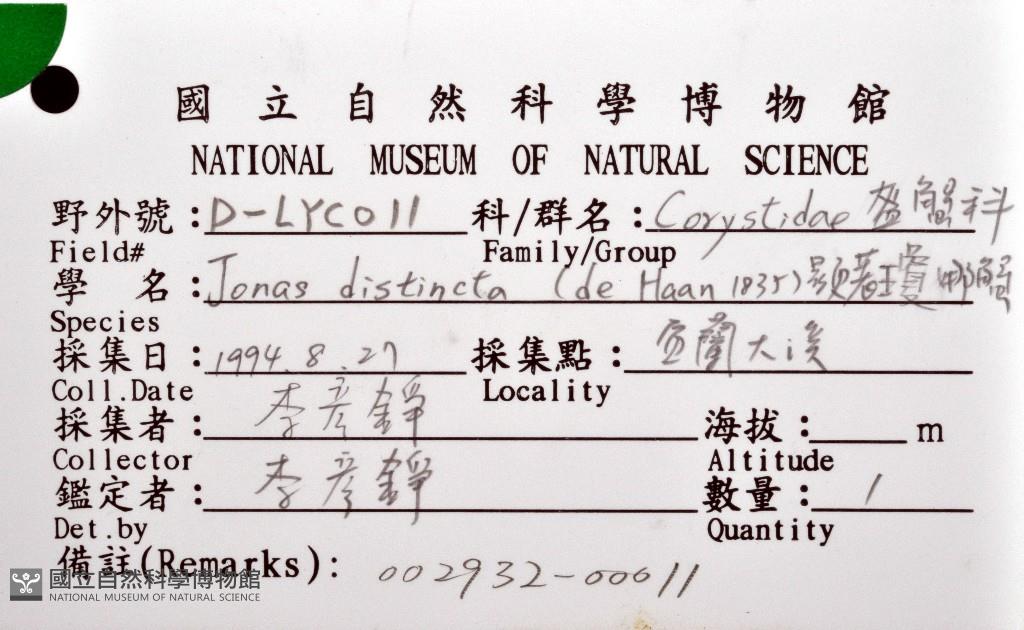 國立自然科學博物館
NATIONAL MUSEUM OF NATURAL SCIENCE
野外號：D-LYC011 科/群名：Corystidae 盔蟹科
Field# Family/Group
學 名：Jonas distincta (de Haan 1835) 顯著瓊娜蟹
Species
採集日：1994.8.27 採集點：宜蘭大溪
Coll.Date Locality
採集者：李彥錚 海拔：m
Collector Altitude
鑑定者：李彥錚 數量：1
Det.by Quantity
備註(Remarks): 002932-00011
國立自然科學博物館
NATIONAL MUSEUM OF NATURAL SCIENCE